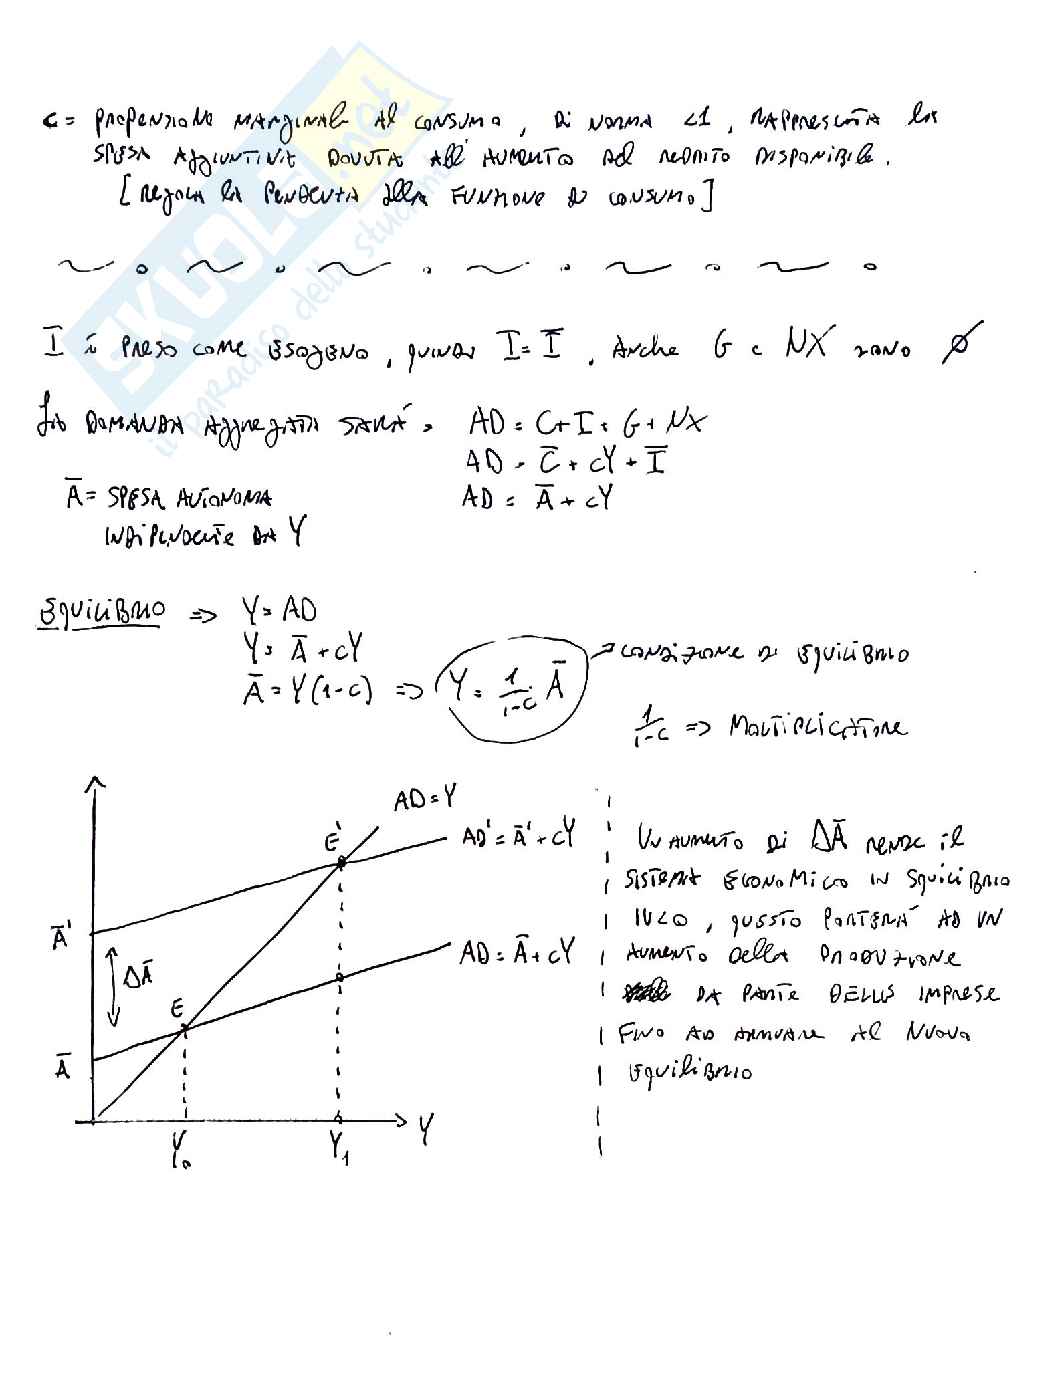 c = PROPENSIONE MARGINALE AL CONSUMO, DI NORMA <1, RAPPRESENTA LA
SPESA AGGIUNTIVA DOVUTA ALL'AUMENTO DEL REDDITO DISPONIBILE.
[REGOLA LA PENDENZA DELLA FUNZIONE DI CONSUMO]
I È PRESO COME ESOGENO, QUINDI I = I̅, ANCHE G E NX SONO Ø
LA DOMANDA AGGREGATA SARÀ: AD = C+I+G+NX
AD = C̅ + cY + I̅
A̅ = SPESA AUTONOMA AD = A̅ + cY
INDIPENDENTE DA Y
EQUILIBRIO => Y = AD
Y = A̅ + cY
A̅ = Y(1-c) => Y = 1/1-c A̅ → CONDIZIONE DI EQUILIBRIO
1/1-c => MOLTIPLICATORE
AD = Y
E'
AD' = A̅' + cY
A̅'
AD = A̅ + cY
ΔA̅
E
A̅
Y
Y₀
Y₁
UN AUMENTO DI ΔA̅ RENDE IL
SISTEMA ECONOMICO IN SQUILIBRIO
, QUESTO PORTERÀ AD UN
AUMENTO DELLA PRODUZIONE
DA PARTE DELLE IMPRESE
FINO AD ARRIVARE AL NUOVO
EQUILIBRIO
SKUOLA.net
il paradiso dello studente